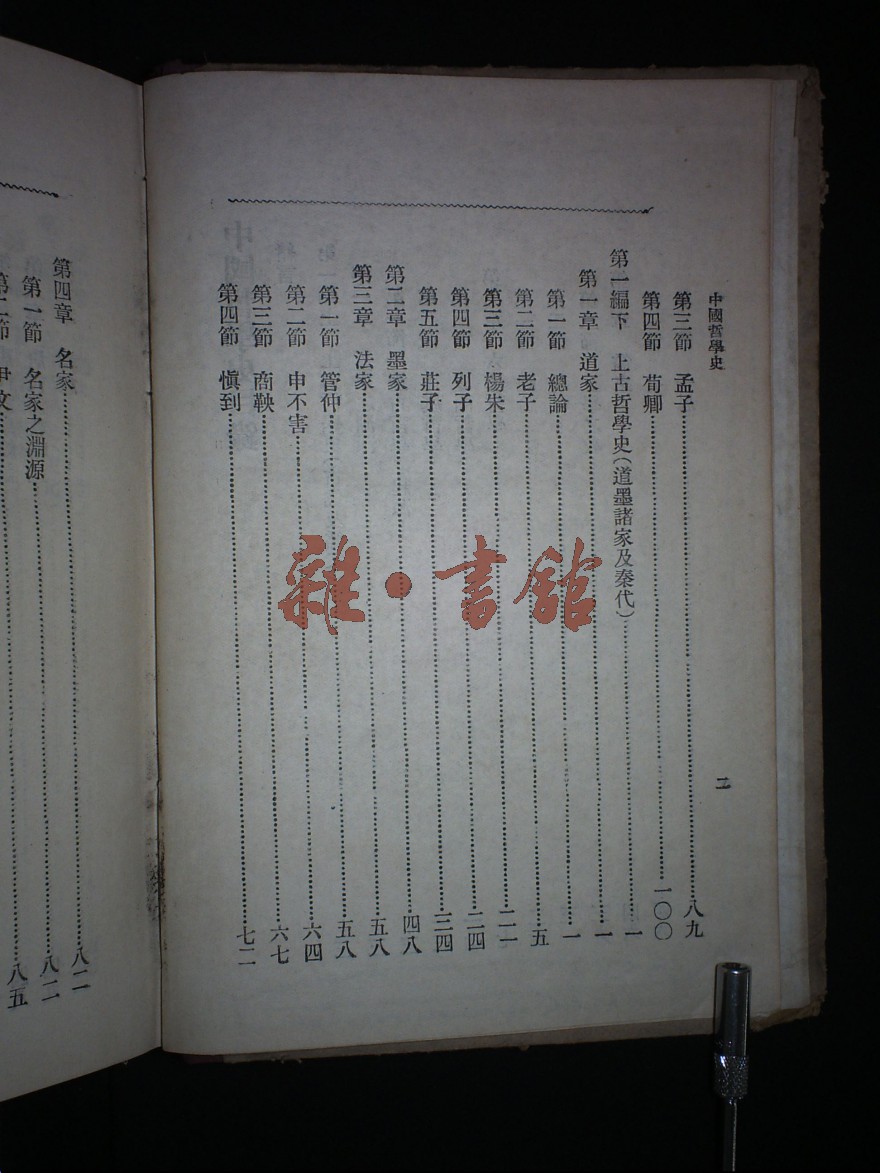 中國哲學史
第三節 孟子……八九
第四節 荀卿……一〇〇
第一編下 上古哲學史(道墨諸家及秦代)……一
第一章 道家……一
第一節 總論……一
第二節 老子……五
第三節 楊朱……二一
第四節 列子……二四
第五節 莊子……三四
第二章 墨家……四八
第三章 法家……五八
第一節 管仲……五八
第二節 申不害……六四
第三節 商鞅……六七
第四節 慎到……七二
二
第四章 名家……八二
第一節 名家之淵源……八二
第二節 尹文……八五
雜·書館